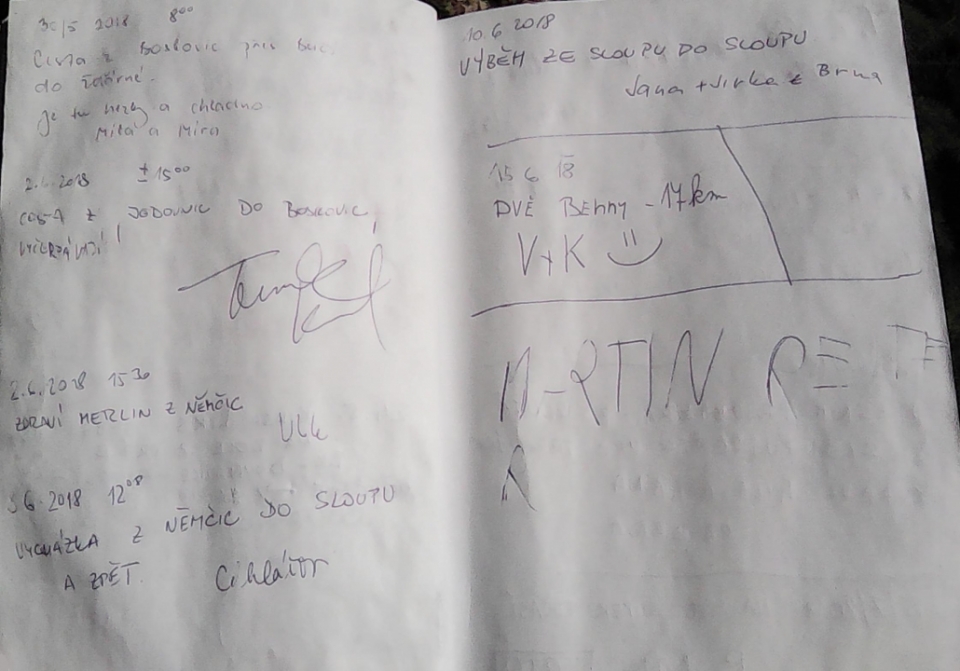 30/5 2018 8⁰⁰
Cesta z Boskovic přes
do Žďárné.
je tu hezky a chladno
Míla a Míra
2.6.2018 ± 15⁰⁰
CESTA Z JEDOVNIC DO BOSKOVIC
2.6.2018 15³⁰
ZDRAVÍ MERLIN Z NĚMČIC
Vlk
6.2018 12⁰⁸
VYCHÁZKA Z NĚMČIC DO SLOUPU
A ZPĚT.
10.6 2018
VÝBĚH ZE SLOUPU DO SLOUPU
Jana + Jirka z Brna
15 6 18
DVĚ BĚHNY - 17km
V+K
MARTIN